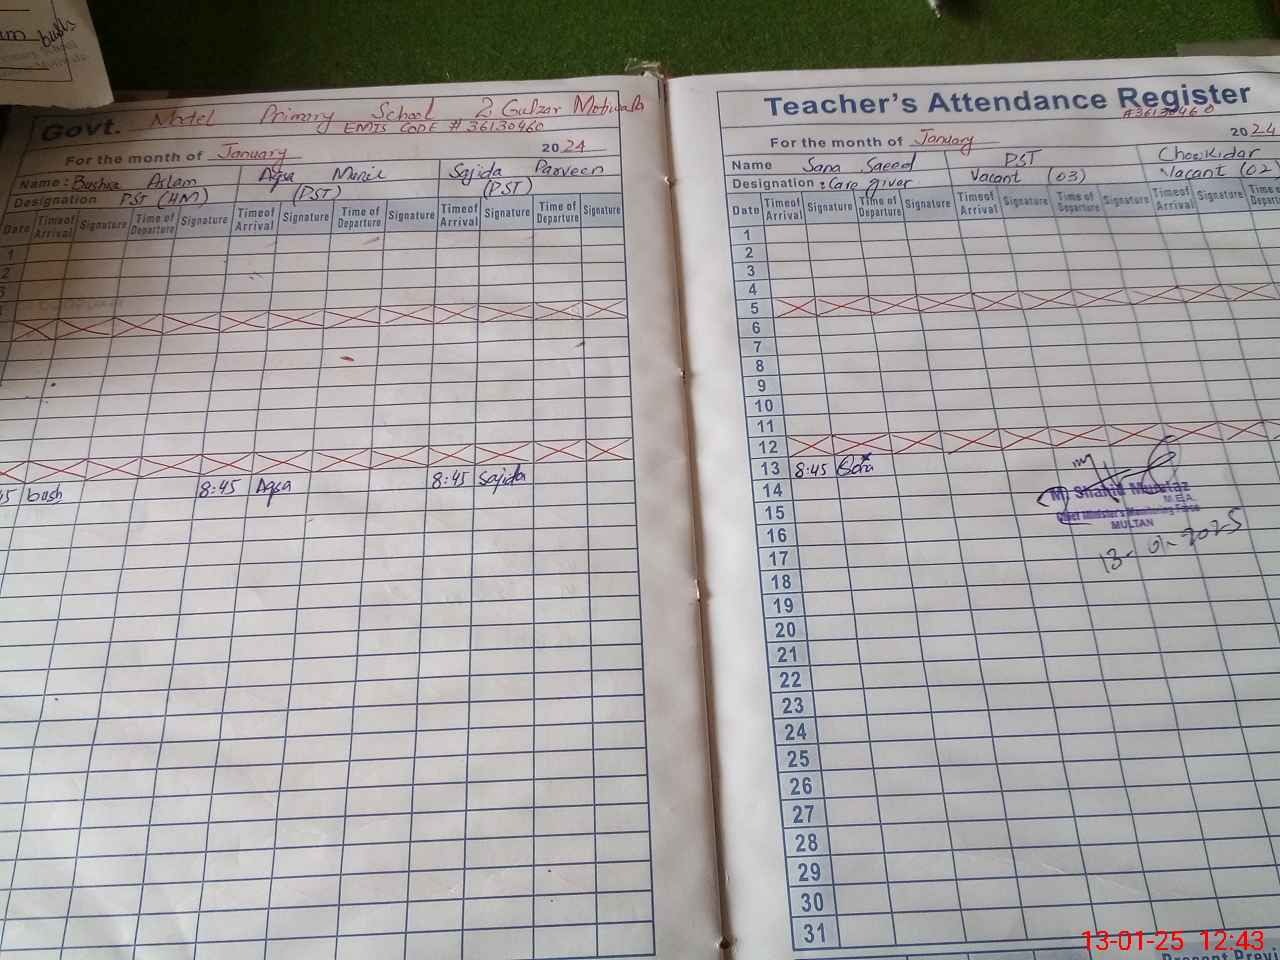 bush
Govt. Model Primary School 2, Gulzar Motiwala
EMIS CODE # 36130460
For the month of January 2024
Name : Bushra Aslam Aqsa Munir Sajida Parveen
Designation PST (HM) (PST) (PST)
Date Time of Arrival Signature Time of Departure Signature Time of Arrival Signature Time of Departure Signature Time of Arrival Signature Time of Departure Signature
1
2
3
45 bush 8:45 Aqsa 8:45 Sajida
Teacher's Attendance Register
#36130460
For the month of January 2024
Name Sana Saeed PST Chowkidar
Designation : Care giver Vacant (03) Vacant (02)
Date Time of Arrival Signature Time of Departure Signature Time of Arrival Signature Time of Departure Signature Time of Arrival Signature Time of Departure
1
2
3
4
5
6
7
8
9
10
11
12
13 8:45 Sana
14
15
16
17
18
19
20
21
22
23
24
25
26
27
28
29
30
31
M. Shahid Mumtaz
M.E.A.
Chief Minister's Monitoring Force
MULTAN
13-01-2025
Present Previ
13-01-25 12:43